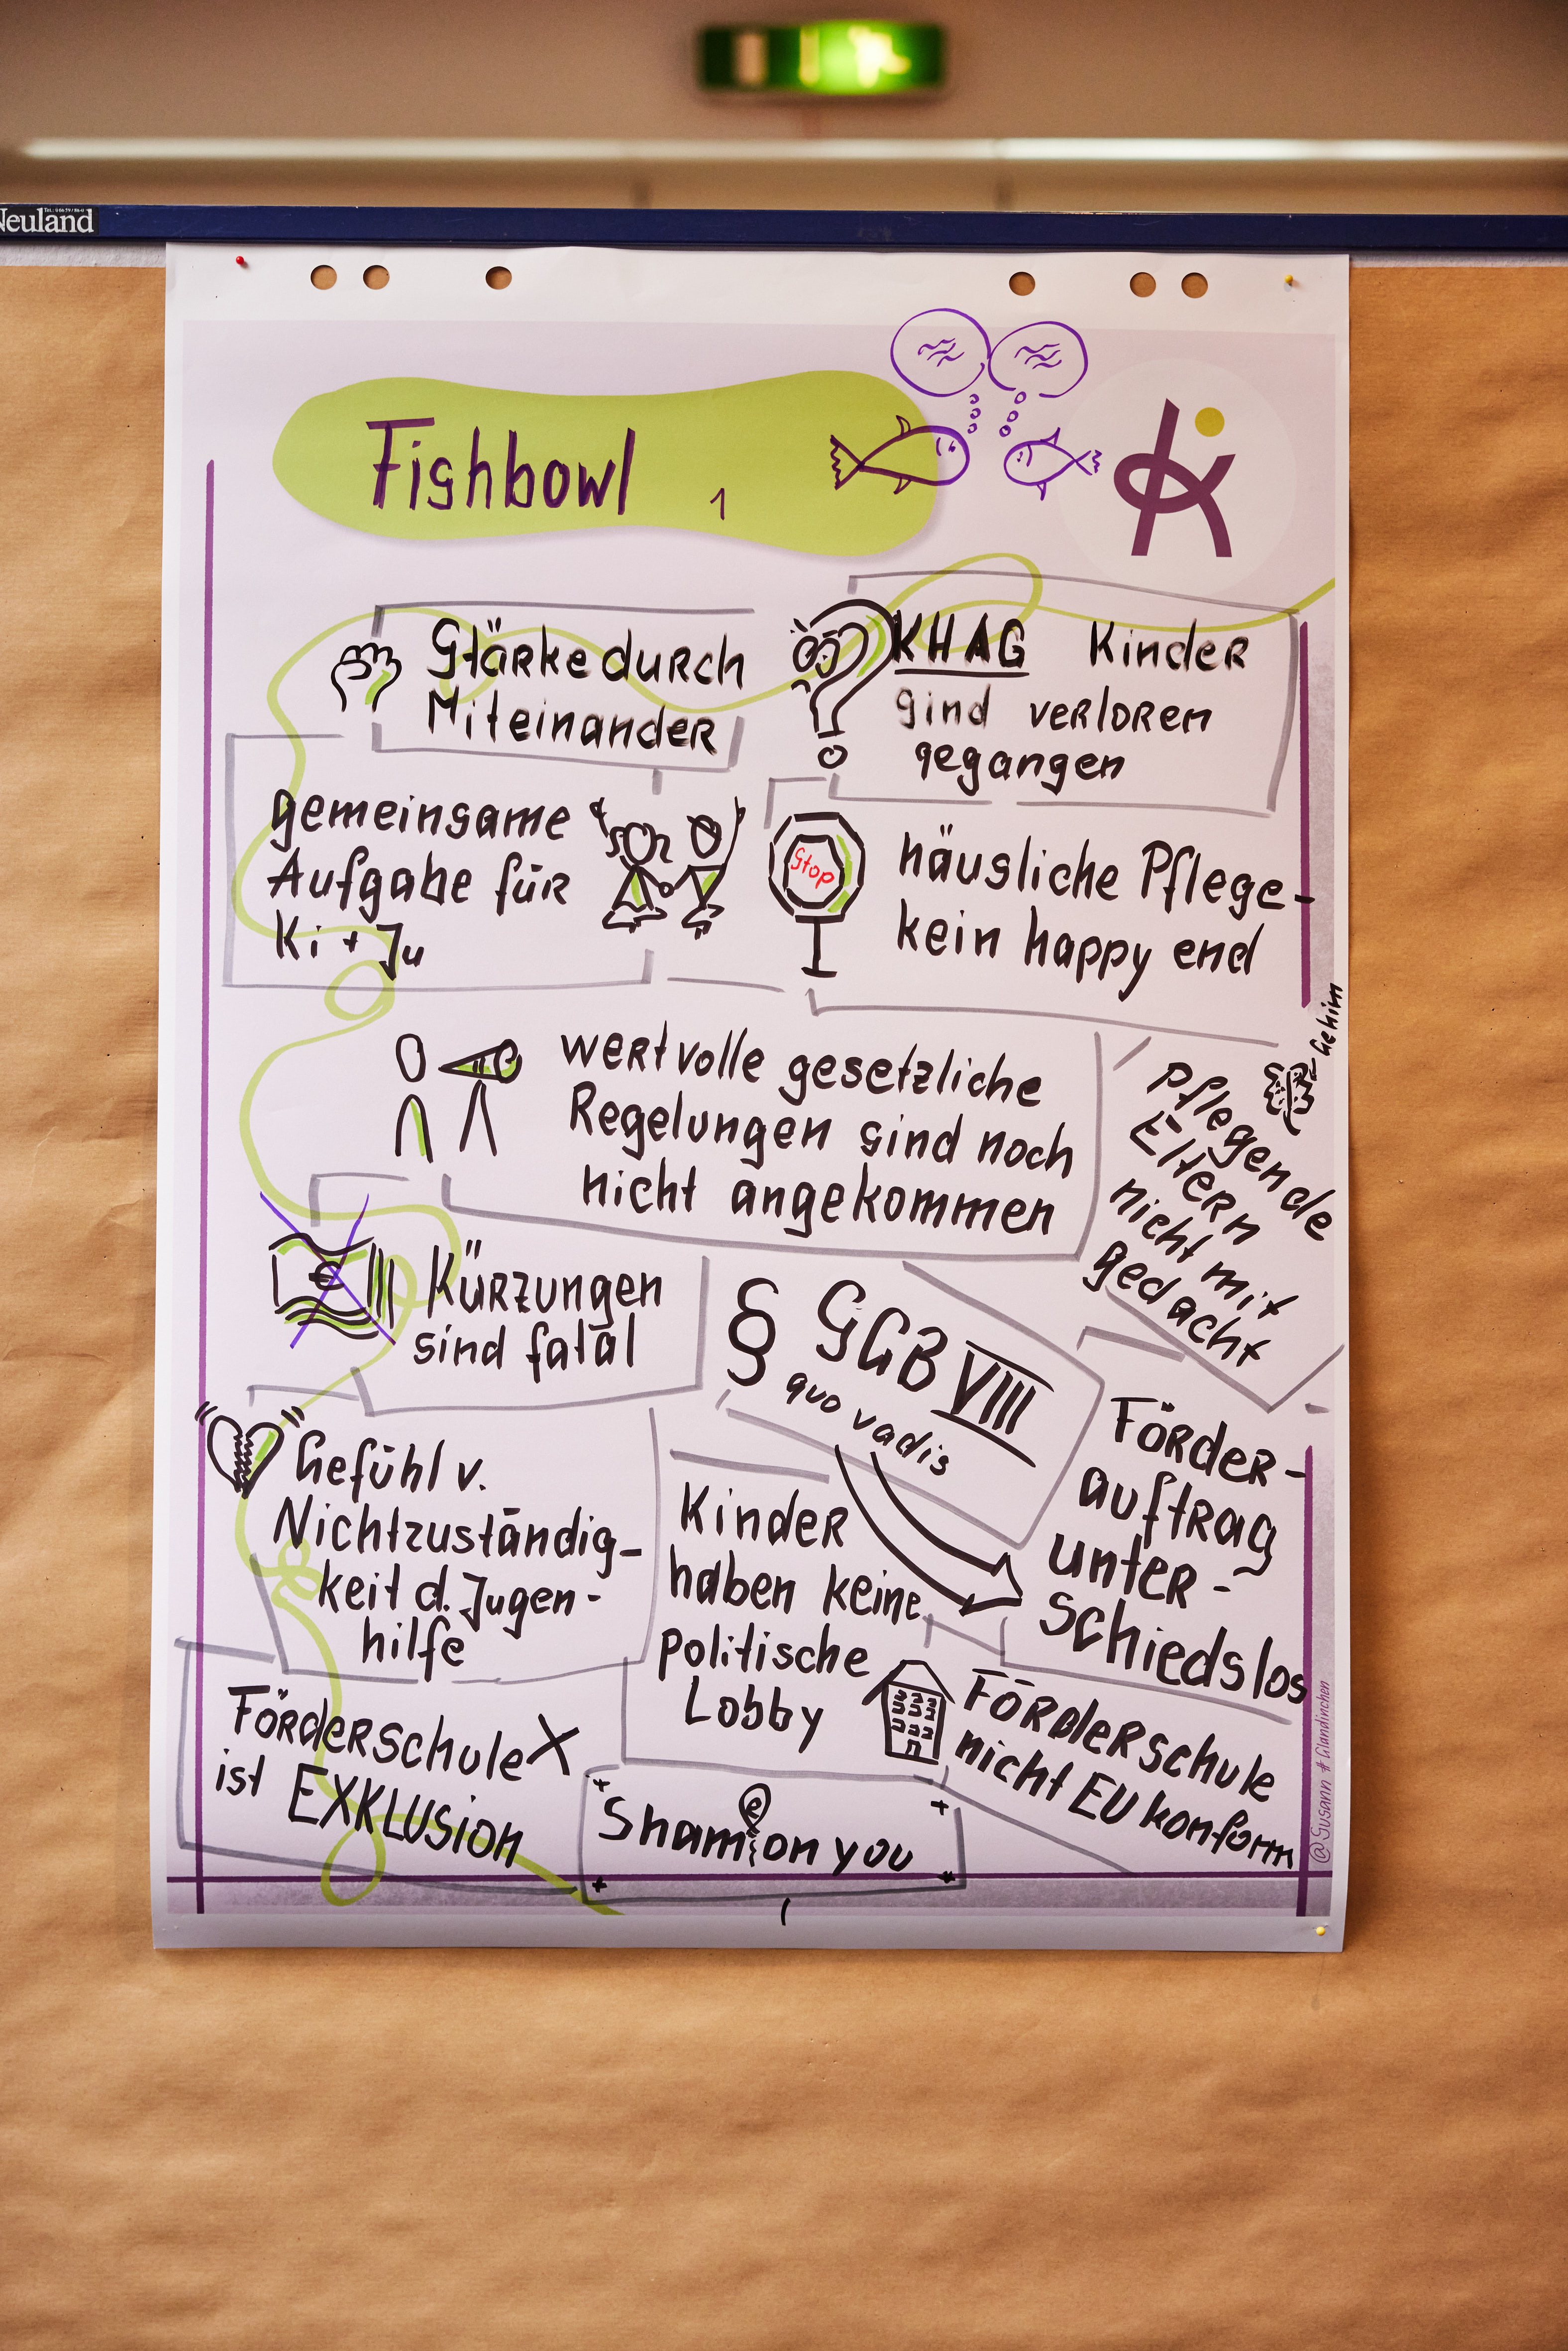 Neuland
Fishbowl 1
Stärke durch
Miteinander
KHAG Kinder
sind verloren
gegangen
gemeinsame
Aufgabe für
Ki + Ju
Stop
häusliche Pflege-
kein happy end
wertvolle gesetzliche
Regelungen sind noch
nicht angekommen
Gehirn
pflegende
Eltern
nicht mit
gedacht
€
Kürzungen
sind fatal
§ SGB VIII
quo vadis
Förder-
auftrag
unter-
schiedslos
Gefühl v.
Nichtzuständig-
keit d. Jugen-
hilfe
Kinder
haben keine
politische
Lobby
Förderschule
ist EXKLUSION
Förderschule
nicht EU konform
Sham e on you
@Susann #Glandinchen